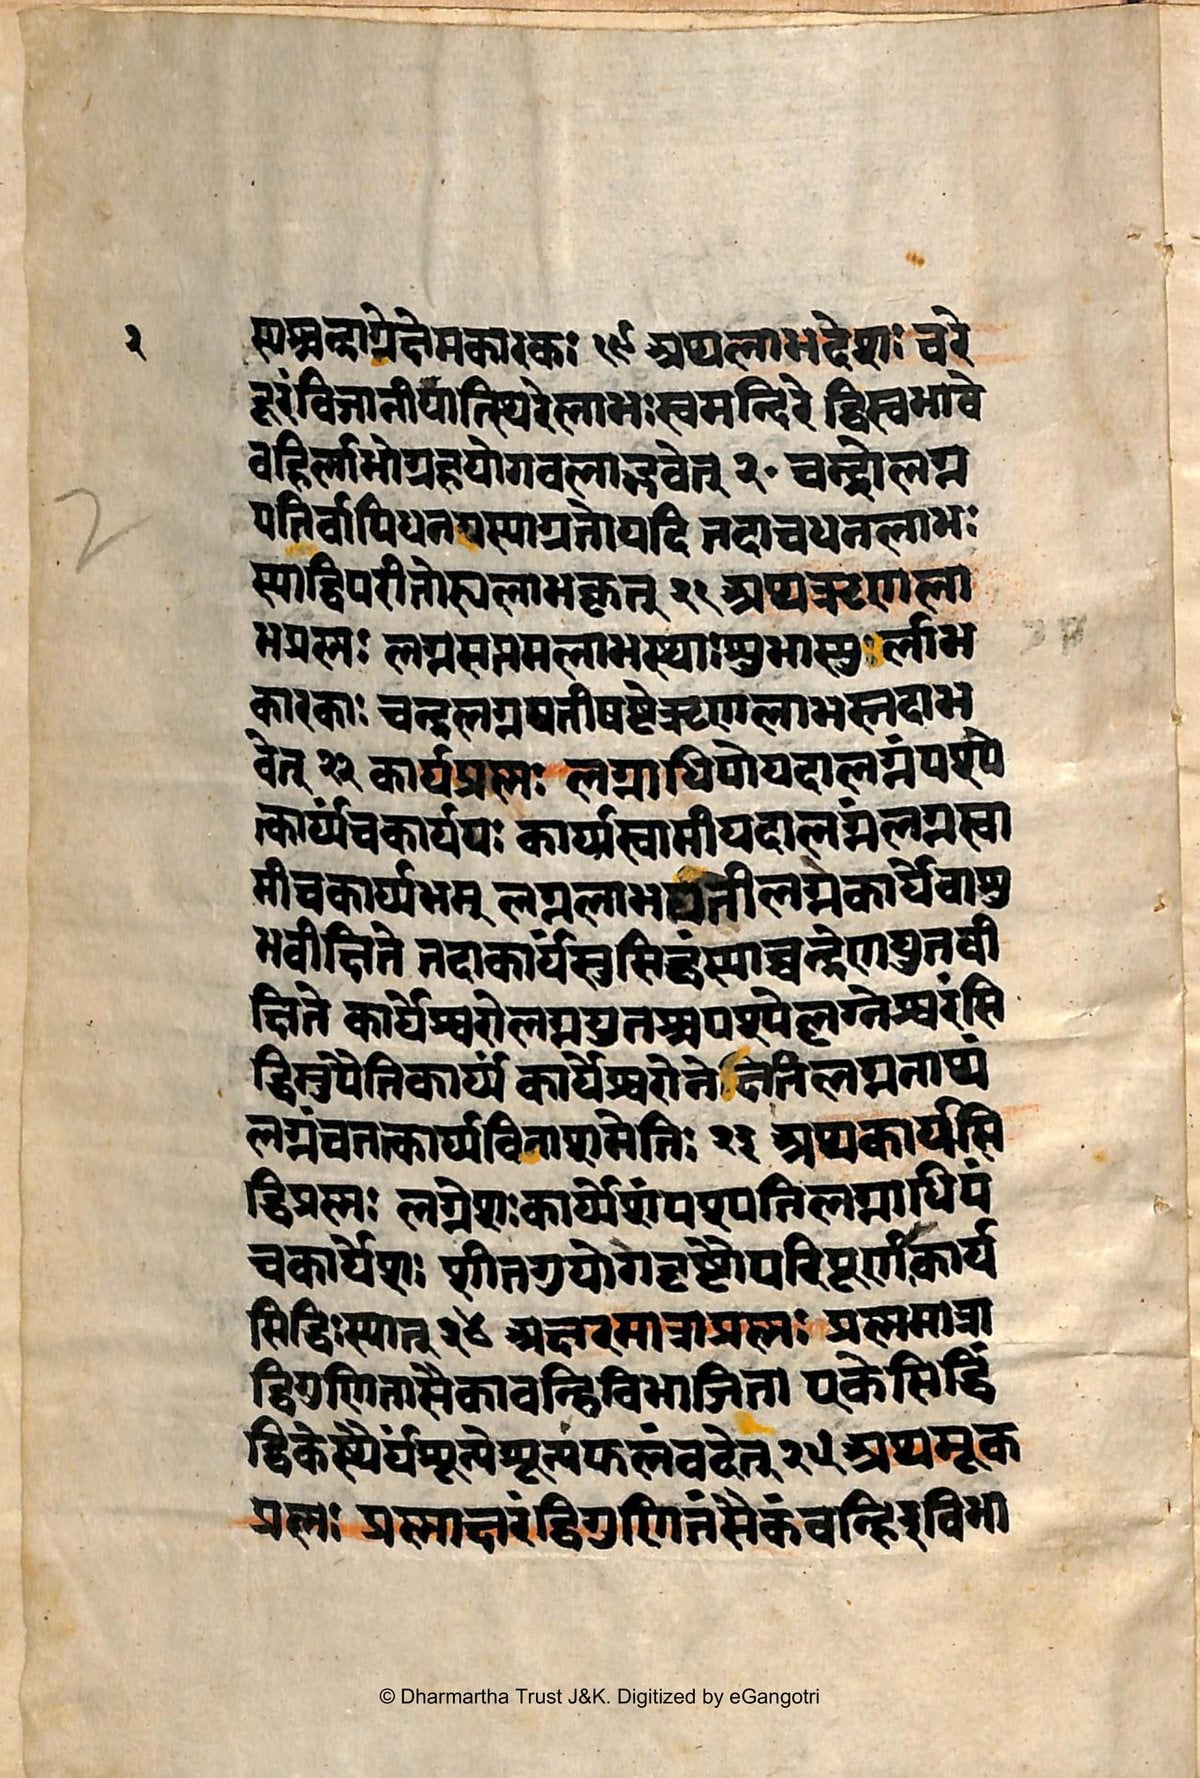 २
स्पश्चन्द्राग्रेक्षेमकारकः १९ अथलाभदेशः चरे
दूरंविजानीयात्स्थिरेलाभःस्वमन्दिरे द्विस्वभावे
वहिर्लाभोग्रहयोगवलाद्भवेत् २० चन्द्रोलग्न
पतिर्वापिधनपस्याग्रतोयदि तदाचधनलाभः
स्याद्विपरीतोस्यलाभकृत् २१ अथऋणला
भप्रश्नः लग्नसप्तमलाभस्थाःशुभास्युःर्लाभ
कारकाः चन्द्रलग्नपतीषष्टेऋणलाभस्तदाभ
वेत् २२ कार्यप्रश्नः लग्नाधिपोयदालग्नंपश्ये
त्कार्य्यंचकार्यपः कार्य्यस्वामीयदालग्नंलग्नस्वा
मीचकार्य्यभम् लग्नलाभपतीलग्नकार्येवाशु
भवीक्षिते तदाकार्यंस्तुसिद्धंस्याच्चन्द्रेणयुतवी
क्षिते कार्येश्वरोलग्नयुतश्चपश्येल्लग्नेश्वरंसि
द्धिमुपैतिकार्य्यं कार्येश्वरोनेक्षतिलग्ननाथं
लग्नंचतत्कार्य्यविनाशमेतिः २३ अथकार्यसि
द्धिप्रश्नः लग्नेशःकार्य्येशंपश्यतिलग्नाधिपं
चकार्येशः शीतगुयोगदृष्टौपरिपूर्णकार्य
सिद्धिःस्यात् २४ अक्षरमात्राप्रश्नः प्रश्नमात्रा
द्विगुणितासैकावन्हिविभाजिता एकेसिद्धिं
द्विकेस्थैर्यंशून्येशून्यंफलंवदेत् २५ अथमूक
प्रश्नः प्रश्नाक्षरंद्विगुणितंसैकंवन्हिरविभा
2
© Dharmartha Trust J&K. Digitized by eGangotri